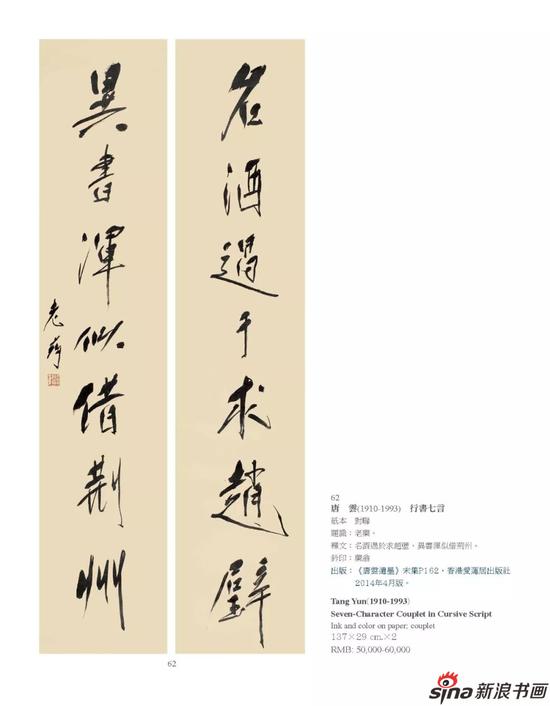 名酒過于求趙璧
異書渾似借荆州
老藥
62
62
唐　雲(1910-1993)　行書七言
紙本　對聯
題識：老藥。
釋文：名酒過於求趙璧，異書渾似借荊州。
鈐印：藥翁
出版：《唐雲遺墨》宋集P162，香港愛蓮居出版社
2014年4月版。
Tang Yun(1910-1993)
Seven-Character Couplet in Cursive Script
Ink and color on paper; couplet
137×29 cm.×2
RMB: 50,000-60,000
sina新浪书画